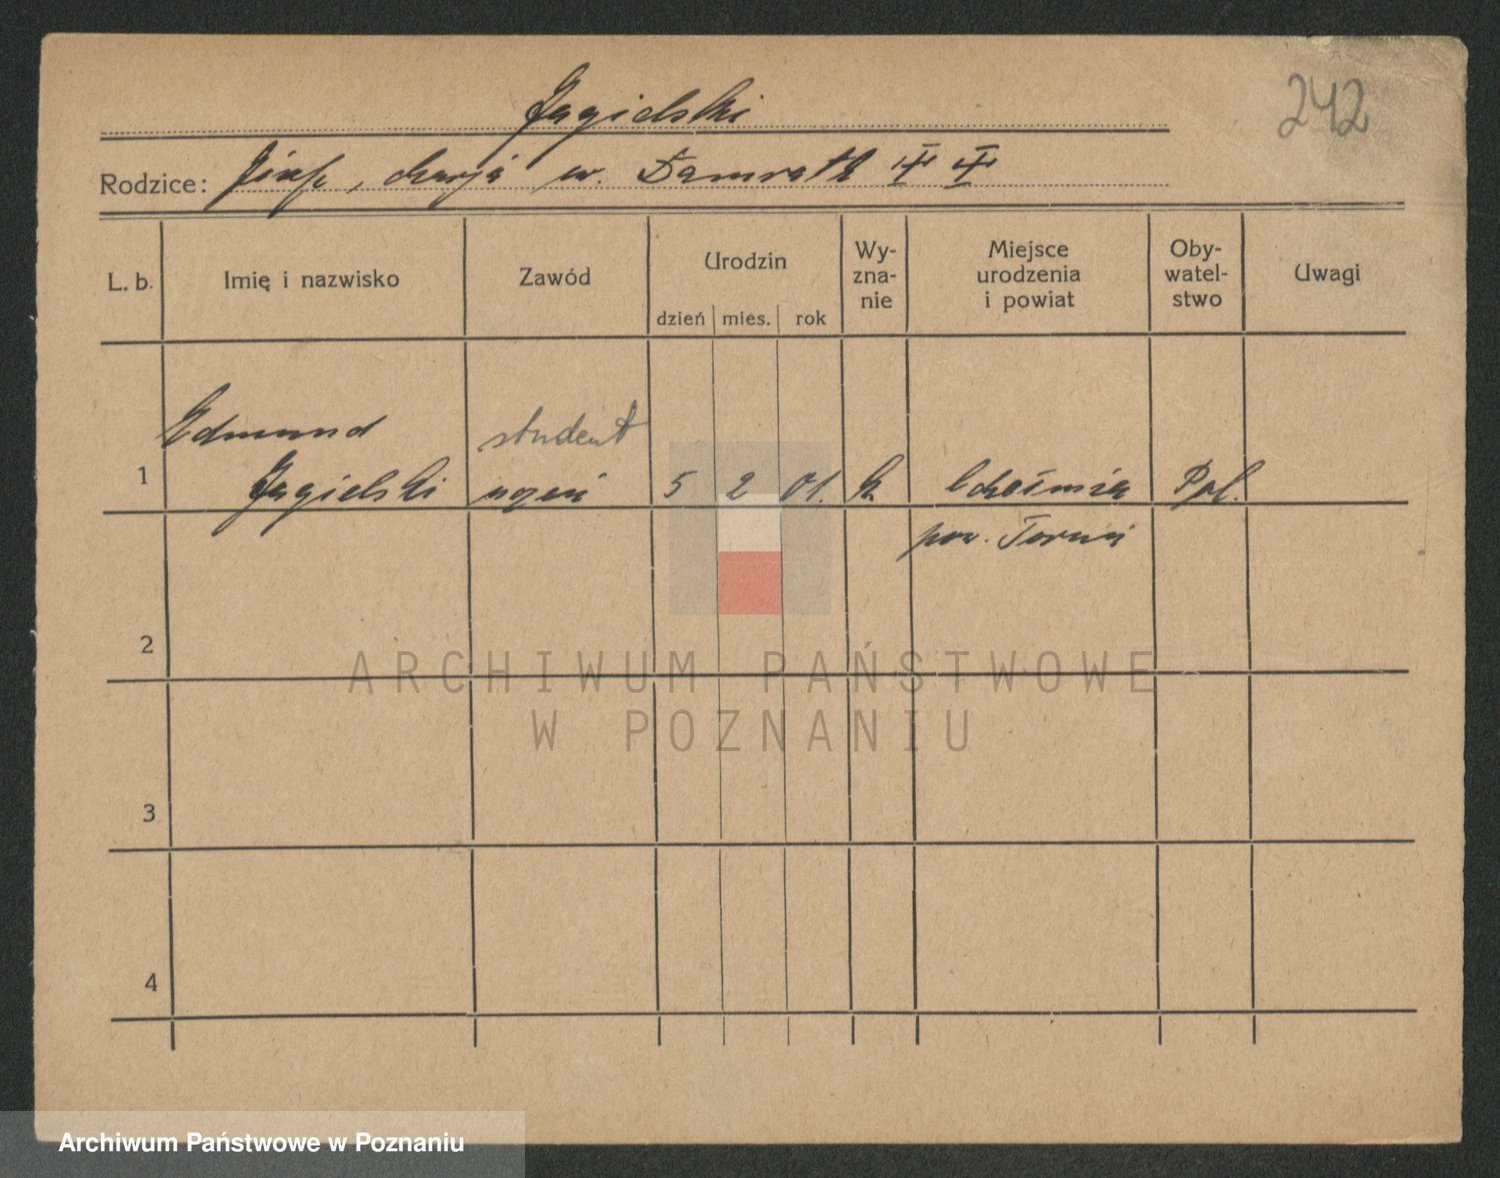 242
Jagielski
Rodzice: Józef, Marja u. Damrath
L. b.
Imię i nazwisko
Zawód
Urodzin
dzień
mies.
rok
Wy-
zna-
nie
Miejsce
urodzenia
i powiat
Oby-
watel-
stwo
Uwagi
Edmund student
1 Jagielski uczeń 5 2 01. k. Chełmża Pol.
pow. Toruń
2
ARCHIWUM PAŃSTWOWE
W POZNANIU
3
4
Archiwum Państwowe w Poznaniu